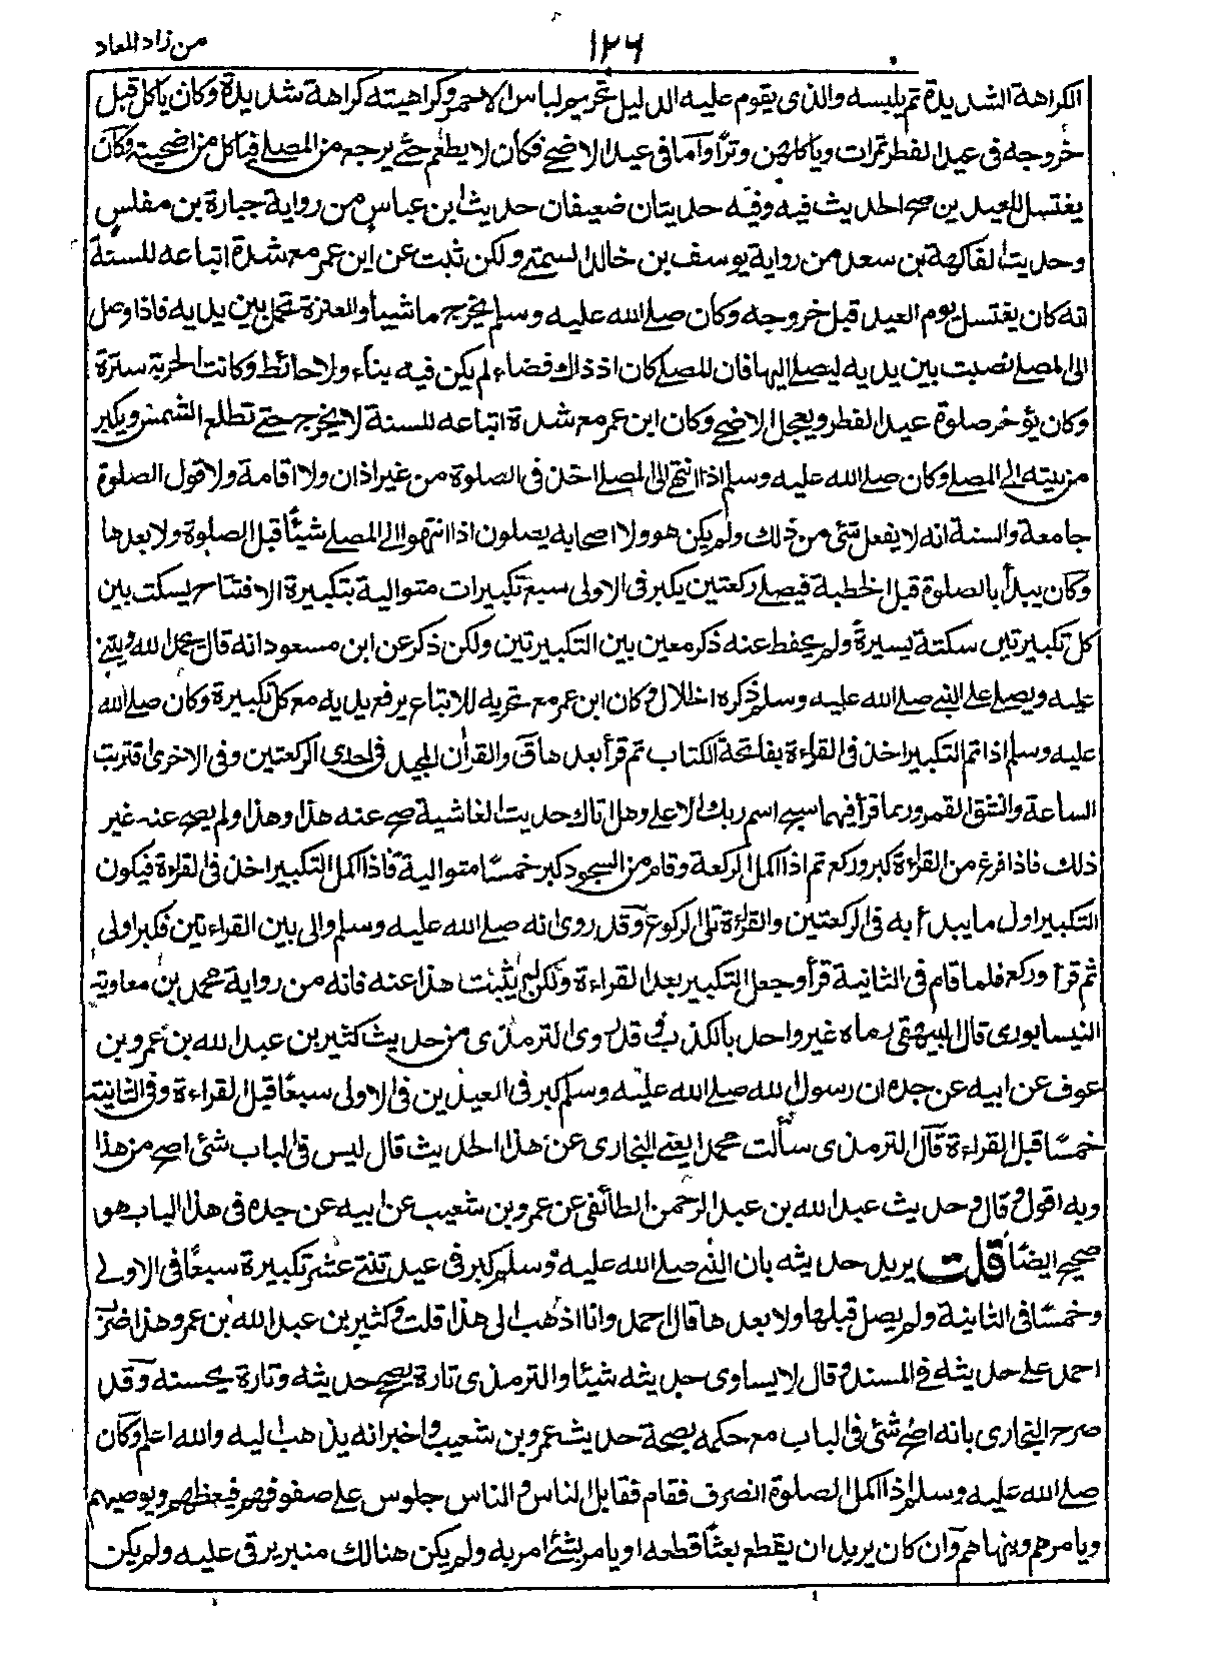 من زاد المعاد
١٢٦
الكراهة الشديدة ثم يلبسه والذى يقوم عليه الدليل تحريم لباس الاحمر وكراهيته كراهة شديدة وكان ياكل قبل
خروجه فى عيد الفطر تمرات وياكلهن وترا وآما فى عيد الاضحے فكان لا يطعم حتے يرجع من المصلے فياكل من اضحيته وكان
يغتسل للعيدين صح الحديث فيه وفيه حديثان ضعيفان حديث ابن عباس من رواية جبارة بن مفلس
وحديث الفاكهة بن سعد من رواية يوسف بن خالد السمتے ولكن ثبت عن ابن عمر مع شدة اتباعه للسنة
انه كان يغتسل يوم العيد قبل خروجه وكان صلے الله عليه وسلم يخرج ماشيا والعنزة تحمل بين يديه فاذا وصل
الى المصلے نصبت بين يديه ليصلے اليها فان المصلے كان اذ ذاك فضاء لم يكن فيه بناء ولا حائط وكانت الحربة سترة
وكان يؤخر صلوة عيد الفطر ويعجل الاضحے وكان ابن عمر مع شدة اتباعه للسنة لا يخرج حتے تطلع الشمس ويكبر
من بيته الے المصلے وكان صلے الله عليه وسلم اذا انتهى الى المصلے اخذ فى الصلوة من غير اذان ولا اقامة ولا قول الصلوة
جامعة والسنة انه لا يفعل شئ من ذلك ولم يكن هو ولا اصحابه يصلون اذا انتهوا الے المصلے شيئًا قبل الصلوة ولا بعدها
وكان يبدأ بالصلوة قبل الخطبة فيصلے ركعتين يكبر فى الاولى سبع تكبيرات متوالية بتكبيرة الافتتاح يسكت بين
كل تكبيرتين سكتة يسيرة ولم يحفظ عنه ذكر معين بين التكبيرتين ولكن ذكر عن ابن مسعود انه قال يحمد الله ويثنے
عليه ويصلے على النبے صلے الله عليه وسلم ذكره الخلال وكان ابن عمر مع تحريه للاتباع يرفع يديه مع كل تكبيرة وكان صلے الله
عليه وسلم اذا تم التكبير اخذ فى القراءة بفاتحة الكتاب ثم قرأ بعدها ق والقران المجيد فى احدى الركعتين وفى الاخرى اقتربت
الساعة وانشق القمر وربما قرأ فيهما سبح اسم ربك الاعلے وهل اتاك حديث الغاشية صح عنه هذا وهذا ولم يصح عنه غير
ذلك فاذا فرغ من القراءة كبر وركع ثم اذا اكمل الركعة وقام من السجود كبر خمسًا متوالية فاذا اكمل التكبير اخذ فى القراءة فيكون
التكبير اول ما يبدأ به فى الركعتين والقراءة تلى الركوع وقد روى انه صلے الله عليه وسلم والى بين القراءتين فكبر اولى
ثم قرأ وركع فلما قام فى الثانية قرأ وجعل التكبير بعد القراءة ولكن لم يثبت هذا عنه فانه من رواية محمد بن معاوية
النيسابورى قال البيهقى رماه غير واحد بالكذب وقد روى الترمذى من حديث كثير بن عبد الله بن عمرو بن
عوف عن ابيه عن جده ان رسول الله صلے الله عليه وسلم كبر فى العيدين فى الاولى سبعًا قبل القراءة وفى الثانية
خمسًا قبل القراءة قال الترمذى سألت محمدا يعنے البخارى عن هذا الحديث قال ليس فى الباب شئ اصح من هذا
وبه اقول وقال وحديث عبد الله بن عبد الرحمن الطائفى عن عمرو بن شعيب عن ابيه عن جده فى هذا الباب هو
صحيح ايضًا قلت يريد حديثه بان النبے صلے الله عليه وسلم كبر فى عيد ثنتے عشر تكبيرة سبعًا فى الاولے
وخمسًا فى الثانية ولم يصل قبلها ولا بعدها قال احمد وانا اذهب الى هذا قلت وكثير بن عبد الله بن عمرو هذا ضرب
احمد علے حديثه فے المسند وقال لا يساوى حديثه شيئا والترمذى تارة يصحح حديثه وتارة يحسنه وقد
صرح البخارى بانه اصح شئ فى الباب مع حكمه بصحة حديث عمرو بن شعيب واخبر انه يذهب اليه والله اعلم وكان
صلے الله عليه وسلم اذا اكمل الصلوة انصرف فقام فقابل الناس والناس جلوس علے صفوفهم فيعظهم ويوصيهم
ويامرهم وينهاهم وان كان يريد ان يقطع بعثًا قطعه او يامر بشئے امر به ولم يكن هنالك منبر يرقى عليه ولم يكن